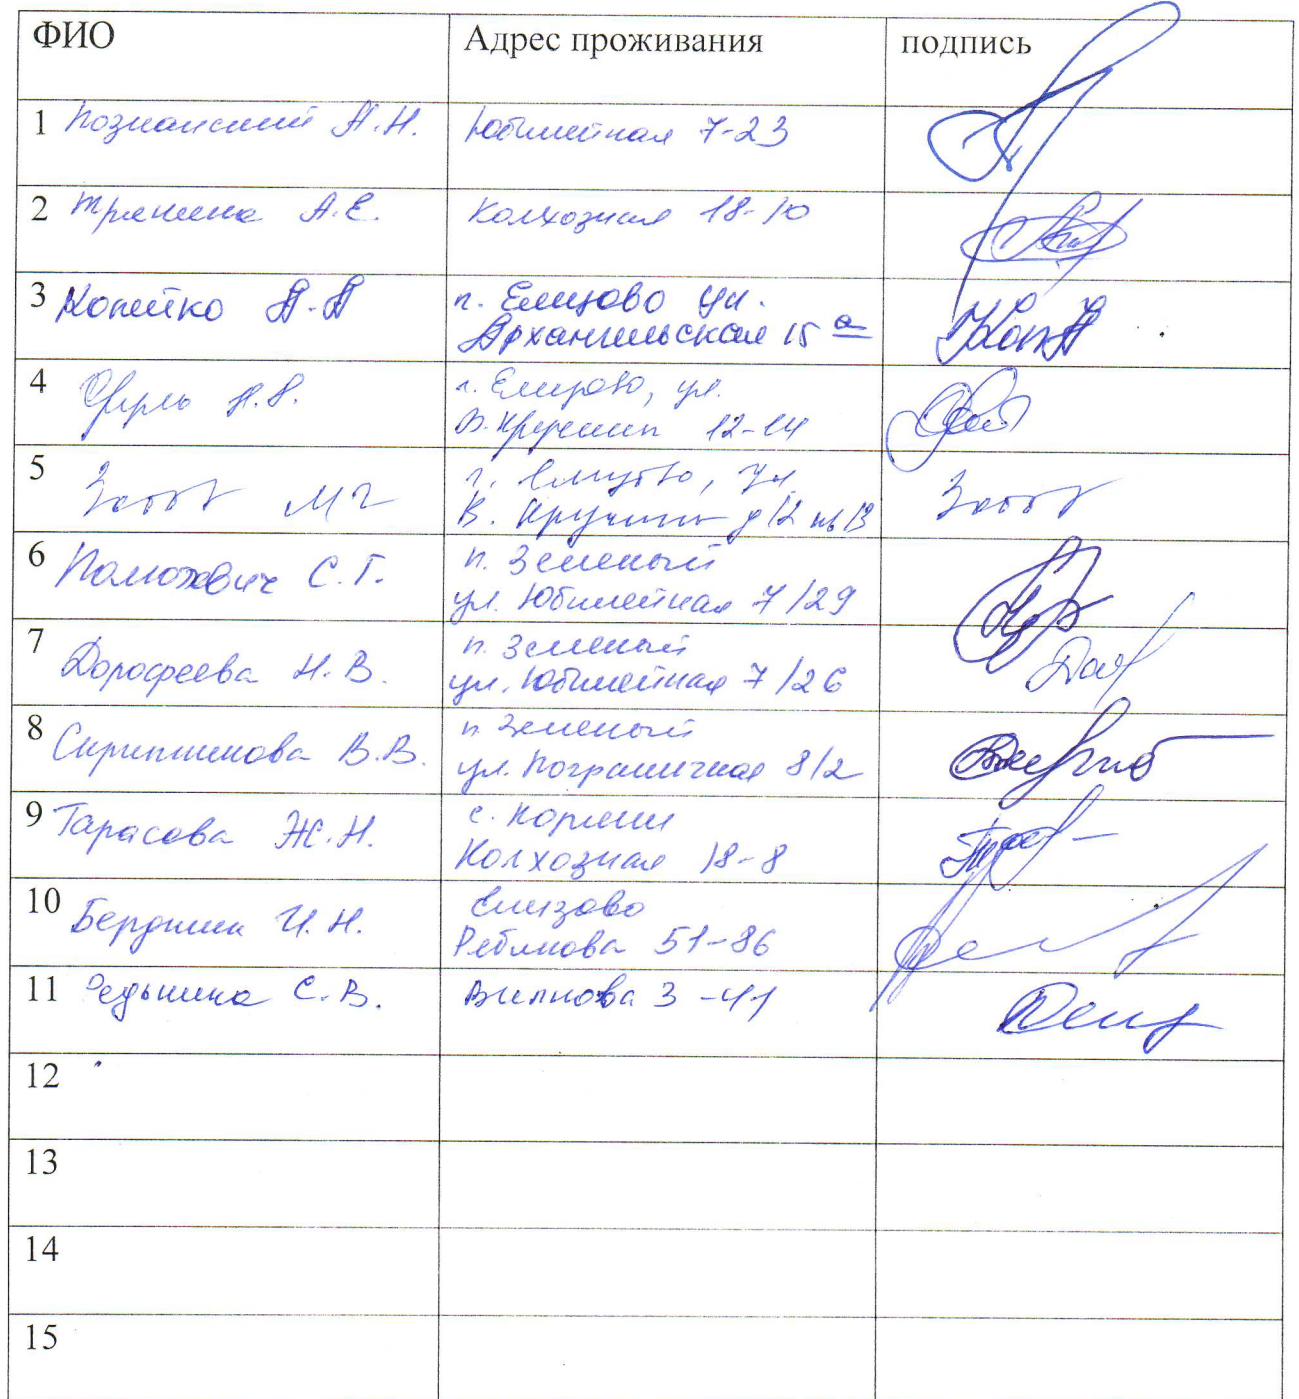 ФИО Адрес проживания подпись
1 Познанский А.Н. Юбилейная 7-23
2 А.Е. Колхозная 18-10
3 Копейко А.А п. Елизово ул.
Архангельская 15 а
4 г. Елизово, ул.
В. Кручины 12-14
5 г. Елизово, ул
В. Кручины д 12 кв 13
6 Полюхович С.Г. п. Зеленый
ул. Юбилейная 7/29
7 Дорофеева Н.В. п. Зеленый
ул. Юбилейная 7/26
8 В.В. п Зеленый
ул. Пограничная 8/2
9 Тарасова Ж.Н. с. Коряки
Колхозная 18-8
10 И.Н. Елизово
Рябикова 51-86
11 С.В. 3-41
12
13
14
15